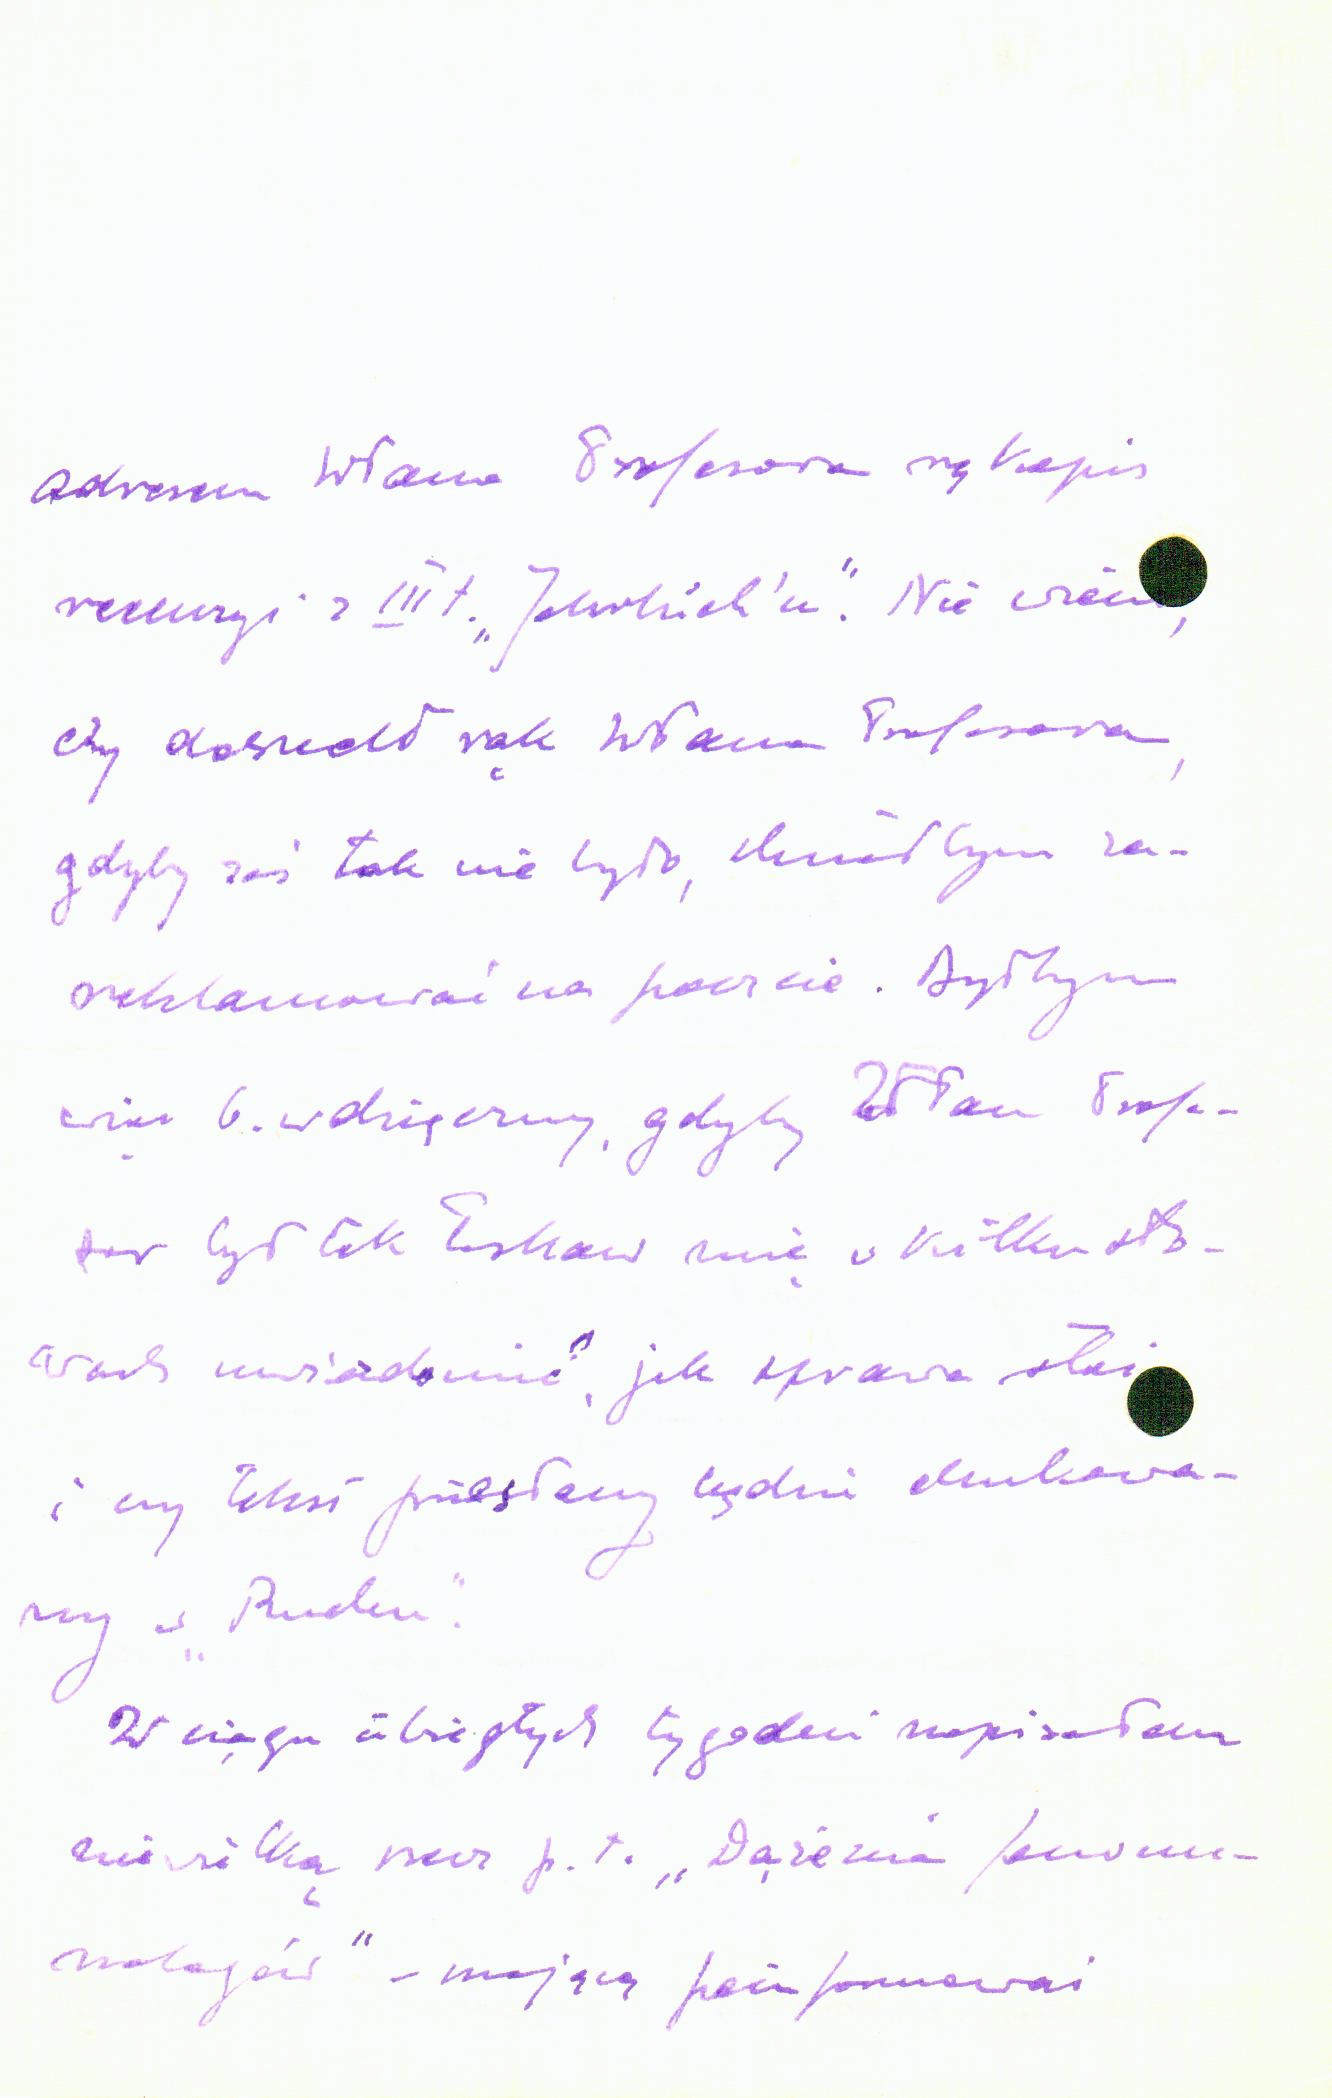 adresem WPana Profesora rękopis
recenzji z III t. „Jahrbuch'u". Nie wiem,
czy doszedł rąk WPana Profesora,
gdyby zaś tak nie było, chciałbym za-
reklamować na poczcie. Byłbym
więc b. wdzięczny, gdyby WPan Profe-
sor był tak łaskaw mię w kilku sło-
wach uwiadomić, jak sprawa stoi
i czy tekst przesłany będzie drukowa-
ny w „Ruchu".
W ciągu ubiegłych tygodni napisałem
niewielką rzecz p. t. „Dążenia fenome-
nologów" – mającą poinformować